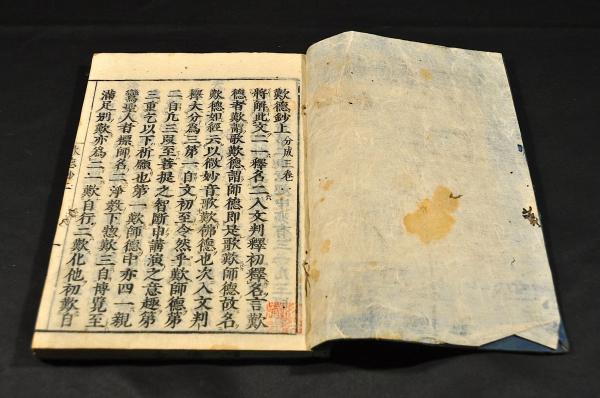 歎德鈔上 分成三卷
將解此文二一釋名二入文判釋初釋名言歎
德者歎謂歌歎德謂師德即是歌歎師德故名
歎德如經云以微妙音歌歎佛德也次入文判
釋大分爲三第一自文初至令然乎歎師德第
二自凡三段至菩提之智斷申講演之意趣第
三重乞以下祈願也第一歎師德中亦四一親
鸞聖人者擧師名二淨教下惣歎三自博覽至
滿足到歎亦爲二一歎自行二歎化他初歎自